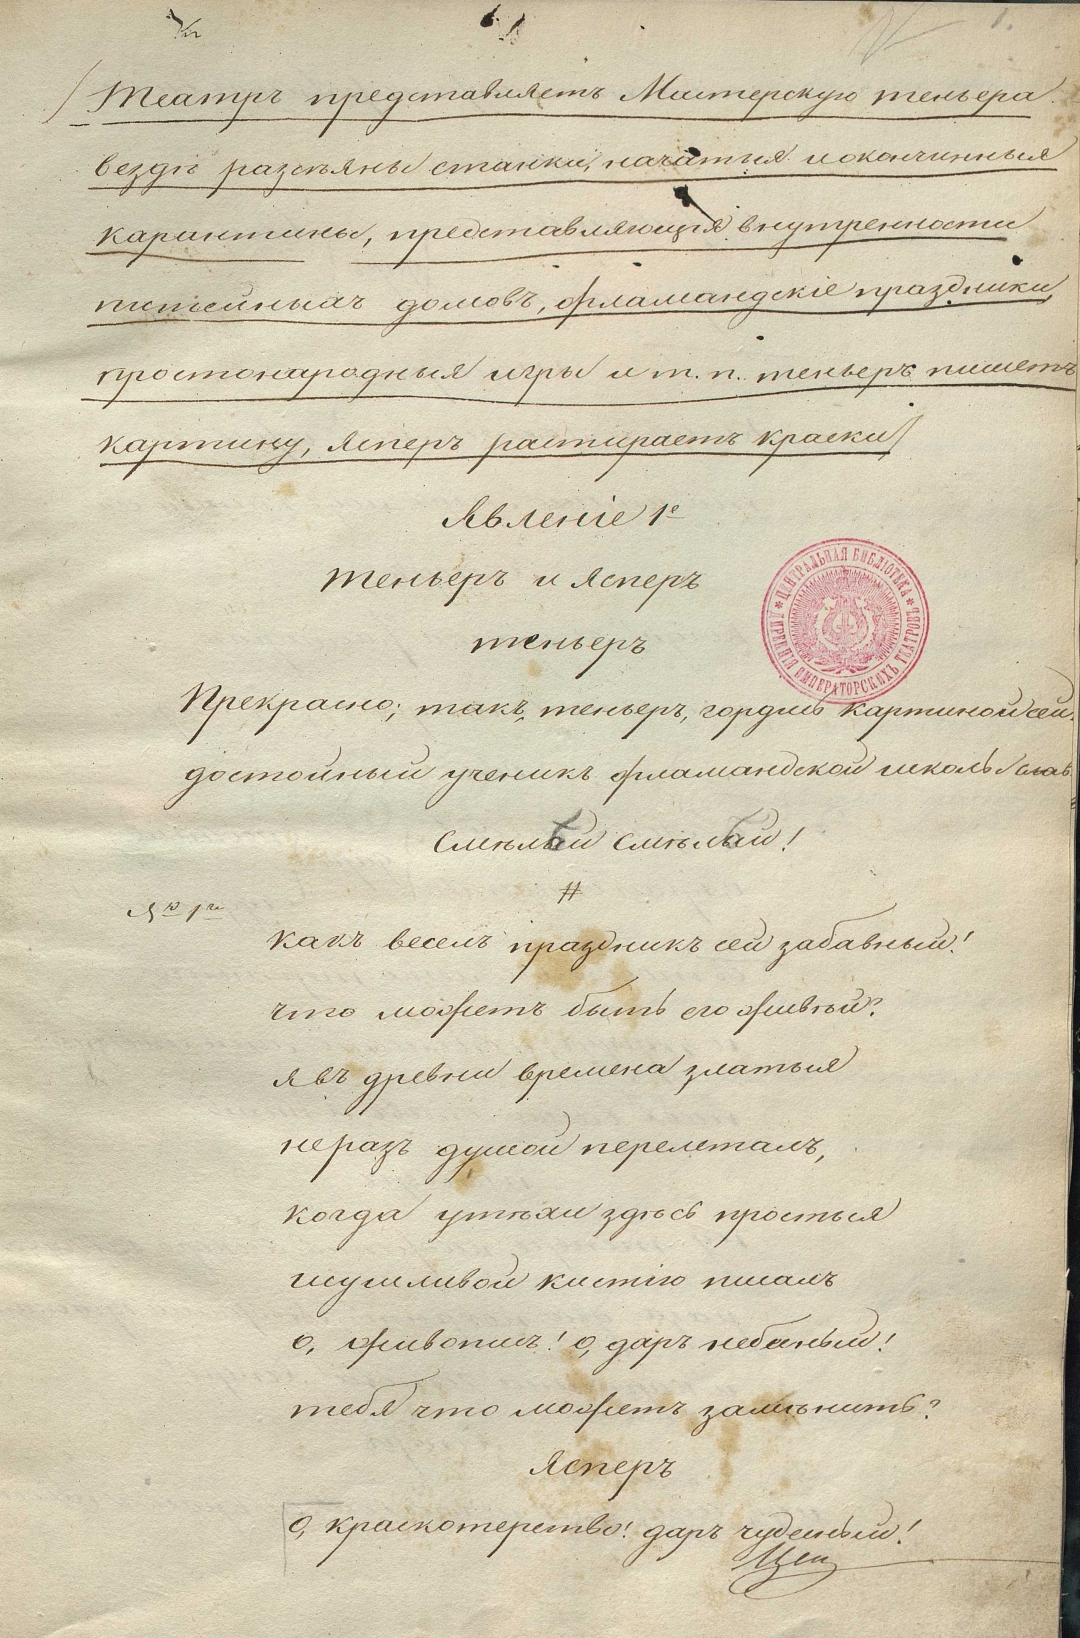 1.
/Театръ представляетъ Мастерскую теньера
вездѣ разсѣяны станки, начатыя и оконченныя
карантины, представляющія внутренности
питейныхъ домовъ, фламандскіе праздники,
простонародныя игры и т. п. теньеръ пишетъ
картину, Ясперъ растираетъ краски/
Явленіе 1е
теньеръ и Ясперъ
теньеръ
Прекрасно; такъ, теньеръ, гордись картиной сей.
достойный ученикъ фламандской школы слав
Смѣлѣй смѣлѣй!
#
№ 1й
какъ веселъ праздникъ сей забавный!
что можетъ быть его живѣй?
я въ древни времена златыя
не разъ душой перелеталъ,
когда утѣхи здѣсь простыя
шутливой кистію писалъ
о, живопись! о, даръ небесный!
тебя что можетъ замѣнить?
Ясперъ
о, краскотерство! даръ чудесный!
ЦЕНТРАЛЬНАЯ БИБЛІОТЕКА
ДИРЕКЦІЯ ИМПЕРАТОРСКИХЪ ТЕАТРОВЪ